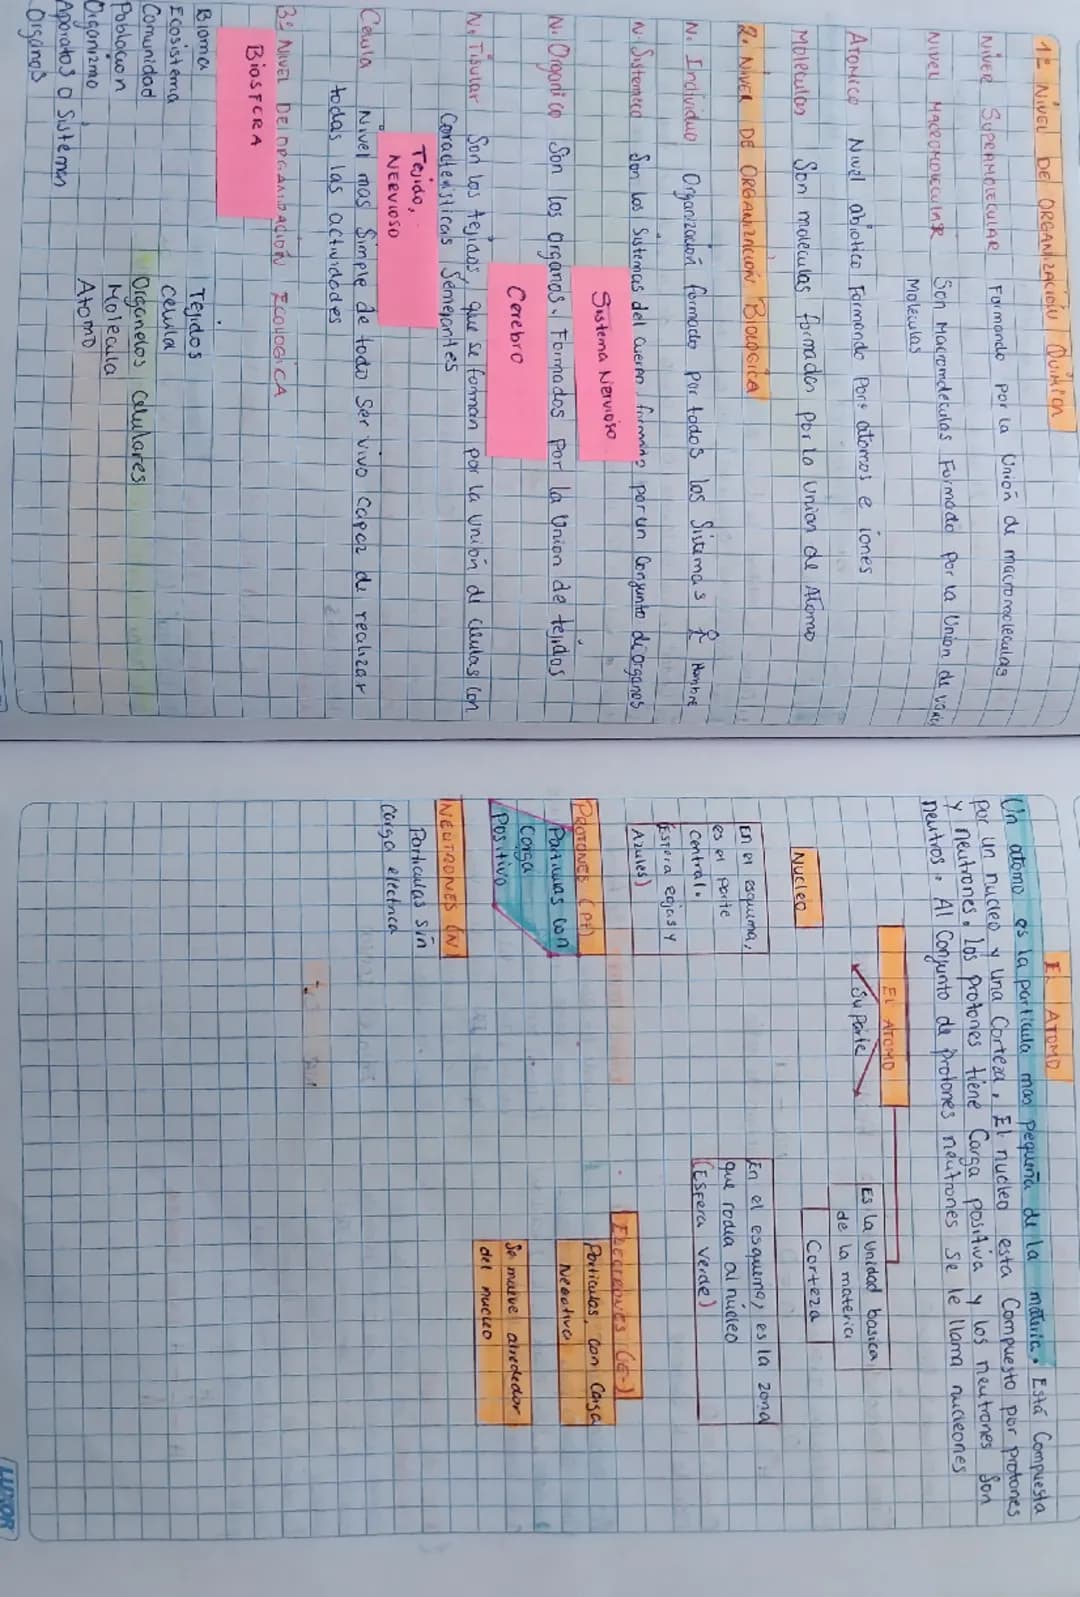 1º NIVEL DE ORGANIZACIÓN QUÍMICA
NIVEL SUPERMOLECULAR Formando por la Unión de macromoleculas
NIVEL MACROMOLECULAR Son Macromoleculas Formado por la Unión de varias
Moleculas
ATOMICO Nivel abiotico Formando Por atomos e iones
Moleculas Son moleculas formados por la union de Atomo
2. NIVEL DE ORGANIZACIÓN BIOLOGICA
N. Individuo Organización formado por todos los Sistemas Hombre
N. Sistemico Son los Sistemas del cuerpo, formado por un Conjunto di organos
Sistema Nervioso
N. Organico Son los organos. Formados por la Union de tejidos
Cerebro
N. Tisular Son los tejidos, que se forman por la unión de celulas con
Caracteristicas Semejantes
Tejido,
NERVIOSO
Celula Nivel mas Simple de todo Ser vivo capaz de realizar
todas las actividades
3º NIVEL DE ORGANIZACIÓN ECOLOGICA
BIOSFERA
Bioma
Ecosistema
Comunidad
Poblacion
Organizmo
Aparatos o Sistemas
Organos
Tejidos
celula
Organelos Celulares
Molecula
Atomo
EL ATOMO
Un atomo es la particula mas pequeña de la materia. Está Compuesta
por un nucleo y una Corteza. El nucleo esta Compuesto por protones
y neutrones. los protones tiene Carga positiva y los neutrones Son
neutros. Al Conjunto de protones neutrones Se le llama nucleones
EL ATOMO
Su parte
Es la Unidad basica
de la materia
Nucleo
Corteza
En el esquema,
es el parte
Central.
(Esfera rojas y
Azules)
En el esquema, es la zona
que rodia al nucleo
(Esfera verde)
PROTONES (P+)
Particulas con
Carga
Positiva
Electrones (e-)
Particulas, con Carga
Negativa
Se mueve alrededor
del nucleo
NEUTRONES (N
Particulas sin
Carga electrica
LUXOR